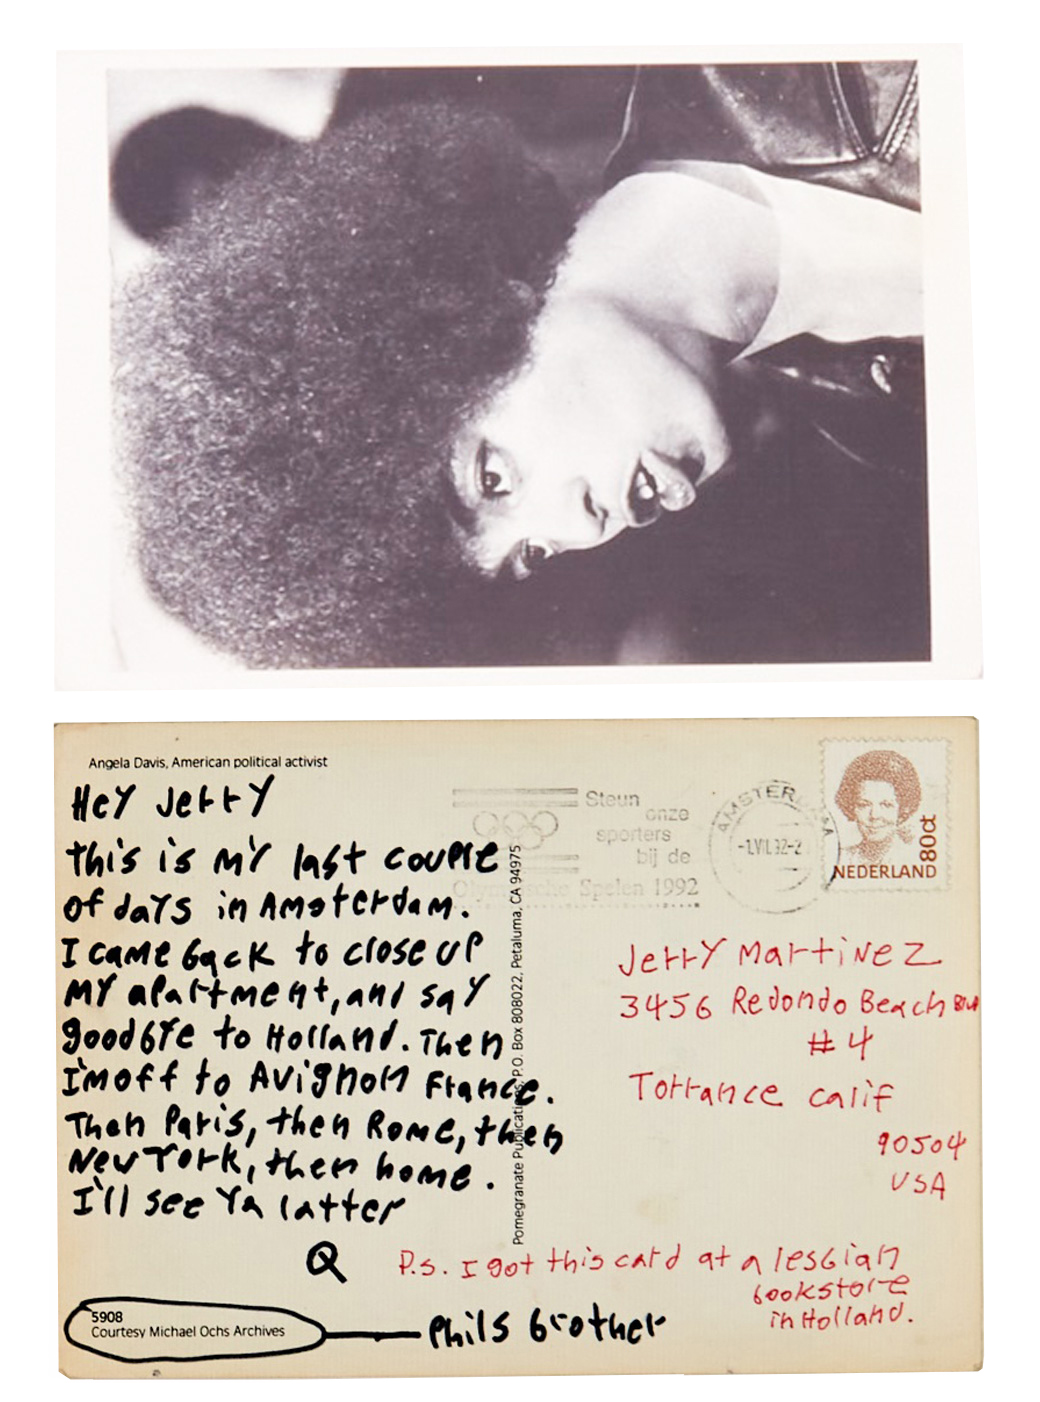 Angela Davis, American political activist
Hey Jerry
this is my last couple
of days in Amsterdam.
I came back to close up
my apartment, and say
goodbye to Holland. Then
I'm off to Avignon France.
Then Paris, then Rome, then
New York, then home.
I'll see ya latter
Q
5908
Courtesy Michael Ochs Archives
Phils brother
Pomegranate Publications, P.O. Box 808022, Petaluma, CA 94975
Steun
onze
sporters
bij de
Olympische Spelen 1992
AMSTERDAM
-1.VII.92-2
NEDERLAND 80ct
Jerry Martinez
3456 Redondo Beach Blvd
#4
Torrance Calif
90504
USA
P.S. I got this card at a lesbian
bookstore
in Holland.